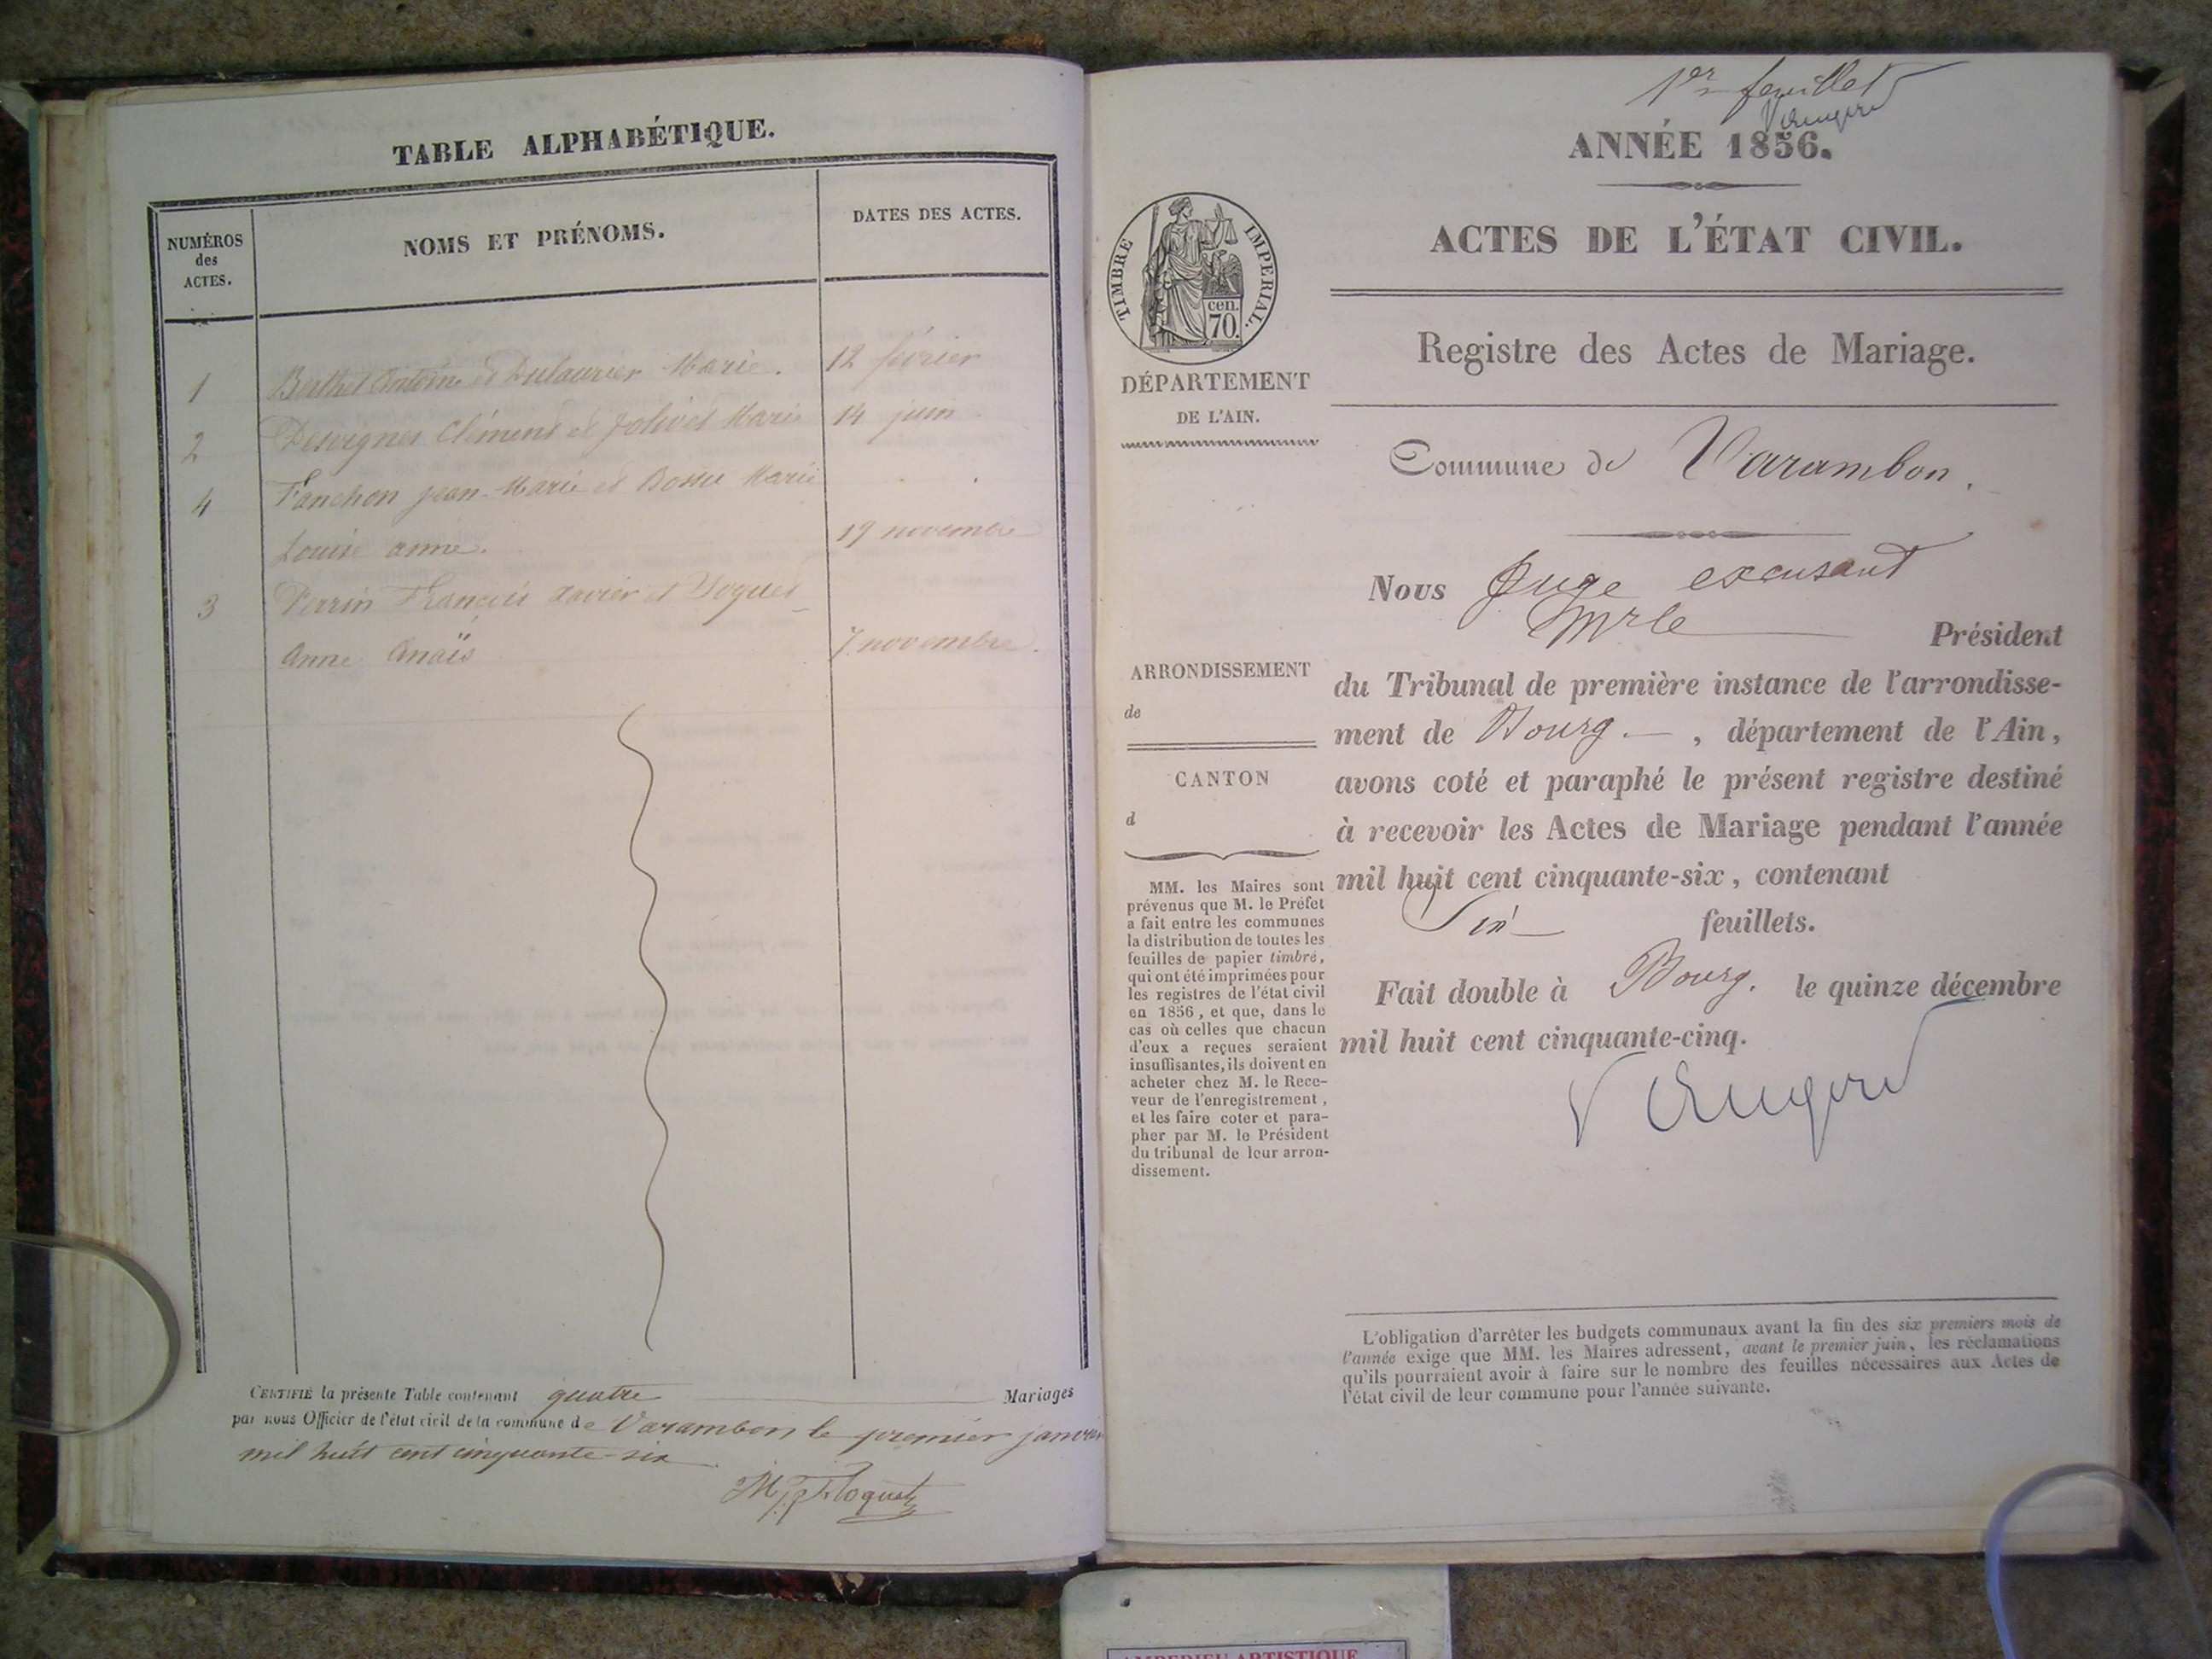 TABLE ALPHABÉTIQUE.
NUMÉROS
des
ACTES.
NOMS ET PRÉNOMS.
DATES DES ACTES.
1 Berthet Antoine et Dulaurier Marie. 12 février
2 Desvignes Clément et Jolivet Marie 14 juin
4 Fanchon jean-Marie et Bossu Marie
Louise anne. 19 novembre
3 Perrin François Xavier et
Anne Anaïs 7 novembre.
CERTIFIÉ la présente Table contenant quatre Mariages
par nous Officier de l'état civil de la commune de Varambon le premier janvier
mil huit cent cinquante-six
1er feuillet
ANNÉE 1856.
ACTES DE L'ÉTAT CIVIL.
Registre des Actes de Mariage.
TIMBRE IMPERIAL.
cen.
70.
DÉPARTEMENT
DE L'AIN.
Commune de Varambon.
Nous Juge excusant
Mr le Président
du Tribunal de première instance de l'arrondisse-
ment de Bourg. , département de l'Ain,
avons coté et paraphé le présent registre destiné
à recevoir les Actes de Mariage pendant l'année
mil huit cent cinquante-six, contenant
Six feuillets.
Fait double à Bourg. le quinze décembre
mil huit cent cinquante-cinq.
ARRONDISSEMENT
de
CANTON
d
MM. les Maires sont
prévenus que M. le Préfet
a fait entre les communes
la distribution de toutes les
feuilles de papier timbré,
qui ont été imprimées pour
les registres de l'état civil
en 1856, et que, dans le
cas où celles que chacun
d'eux a reçues seraient
insuffisantes, ils doivent en
acheter chez M. le Rece-
veur de l'enregistrement,
et les faire coter et para-
pher par M. le Président
du tribunal de leur arron-
dissement.
L'obligation d'arrêter les budgets communaux avant la fin des six premiers mois de
l'année exige que MM. les Maires adressent, avant le premier juin, les réclamations
qu'ils pourraient avoir à faire sur le nombre des feuilles nécessaires aux Actes de
l'état civil de leur commune pour l'année suivante.
ARTISTIQUE